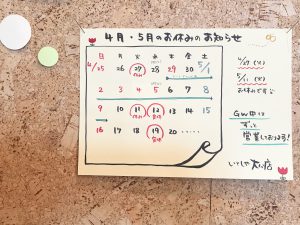 4月・5月のお休みのお知らせ
日 月 火 水 木 金 土
4/25 26 27 28 29 30 5/1
2 3 4 5 6 7 8
9 10 11 12 13 14 15
16 17 18 19 20 ……
4/27 (火)
5/11 (火)
お休みです
GW中は
ずっと
営業しております!